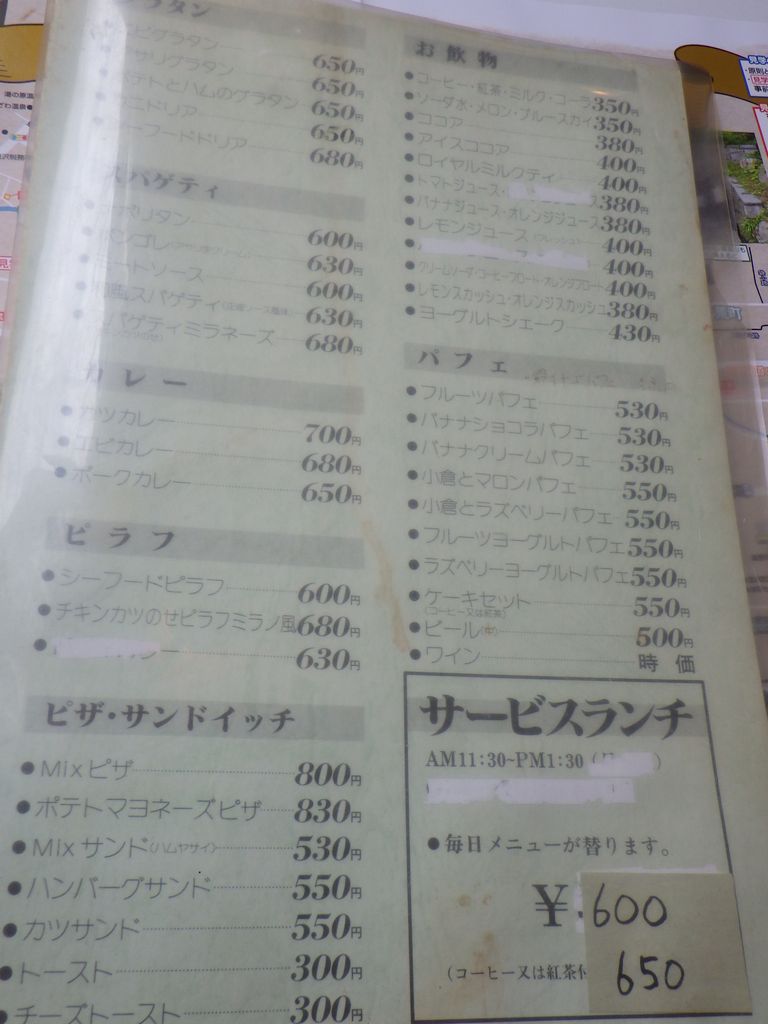 グラタン
エビグラタン 650円
アサリグラタン 650円
ポテトとハムのグラタン 650円
ドリア 650円
シーフードドリア 680円
スパゲティ
ナポリタン 600円
ボンゴレ 630円
ミートソース 600円
和風スパゲティ 630円
スパゲティミラネーズ 680円
カレー
カツカレー 700円
エビカレー 680円
ポークカレー 650円
ピラフ
シーフードピラフ 600円
チキンカツのせピラフミラノ風 680円
630円
ピザ・サンドイッチ
Mixピザ 800円
ポテトマヨネーズピザ 830円
Mixサンド(ハムヤサイ) 530円
ハンバーグサンド 550円
カツサンド 550円
トースト 300円
チーズトースト 300円
お飲物
コーヒー・紅茶・ミルク・コーラ 350円
ソーダ水・メロン・ブルースカイ 350円
ココア 380円
アイスココア 400円
ロイヤルミルクティ 400円
トマトジュース・ 380円
バナナジュース・オレンジジュース 380円
レモンジュース(フレッシュ) 400円
400円
クリームソーダ・コーヒーフロート・オレンジフロート 400円
レモンスカッシュ・オレンジスカッシュ 380円
ヨーグルトシェーク 430円
パフェ
フルーツパフェ 530円
バナナショコラパフェ 530円
バナナクリームパフェ 530円
小倉とマロンパフェ 550円
小倉とラズベリーパフェ 550円
フルーツヨーグルトパフェ 550円
ラズベリーヨーグルトパフェ 550円
ケーキセット 550円
(コーヒー又は紅茶)
ビール(中) 500円
ワイン 時価
サービスランチ
AM11:30~PM1:30
毎日メニューが替ります。
¥.600
(コーヒー又は紅茶付
650